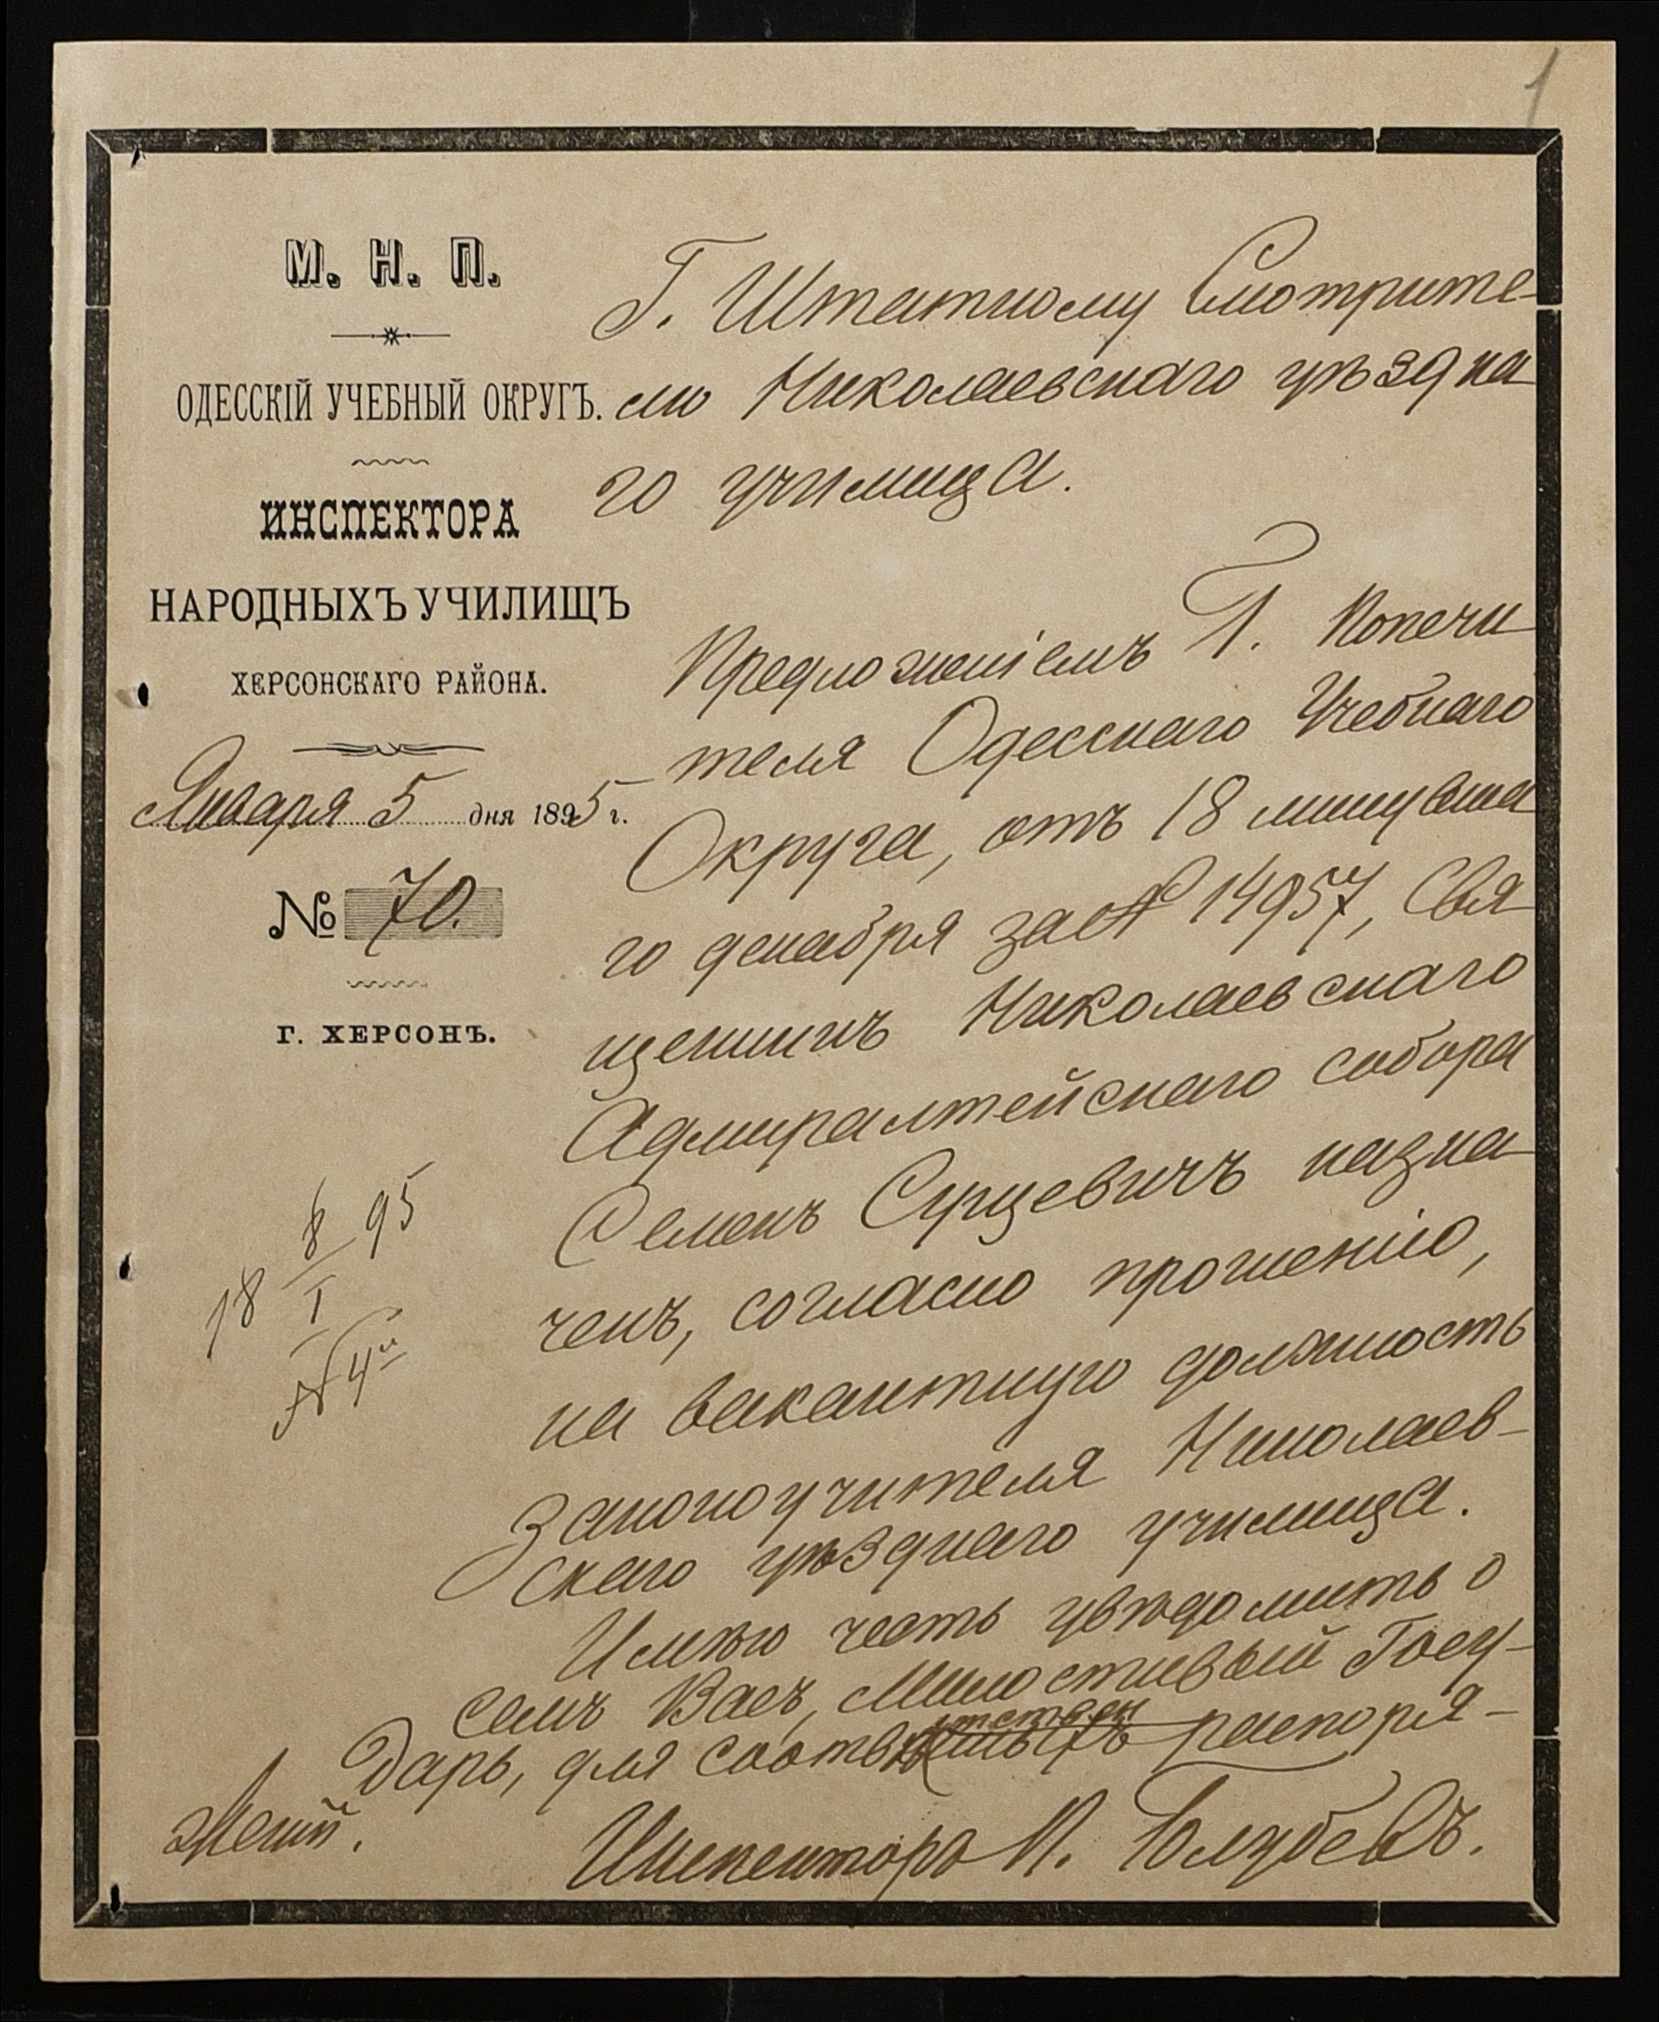 1
М. Н. П.
ОДЕССКІЙ УЧЕБНЫЙ ОКРУГЪ.
ИНСПЕКТОРА
НАРОДНЫХЪ УЧИЛИЩЪ
ХЕРСОНСКАГО РАЙОНА.
Января 5 дня 1895 г.
№ 70.
Г. ХЕРСОНЪ.
18 8/I 95
№ 4й
Г. Штатному Смотрите-
лю Николаевскаго уѣздна
го училища.
Предложеніемъ Г. Попечи
теля Одесскаго Учебнаго
Округа, отъ 18 минувша
го декабря за № 14957, Свя
щенникъ Николаевскаго
Адмиралтейскаго собора
Семенъ Сущевичъ назна
ченъ, согласно прошенію,
на вакантную должность
законоучителя Николаев-
скаго уѣзднаго училища.
Имѣю честь увѣдомить о
семъ Васъ, Милостивый Госу-
дарь, для соотвѣтственныхъ распоря-
женій.
Инспекторъ П.